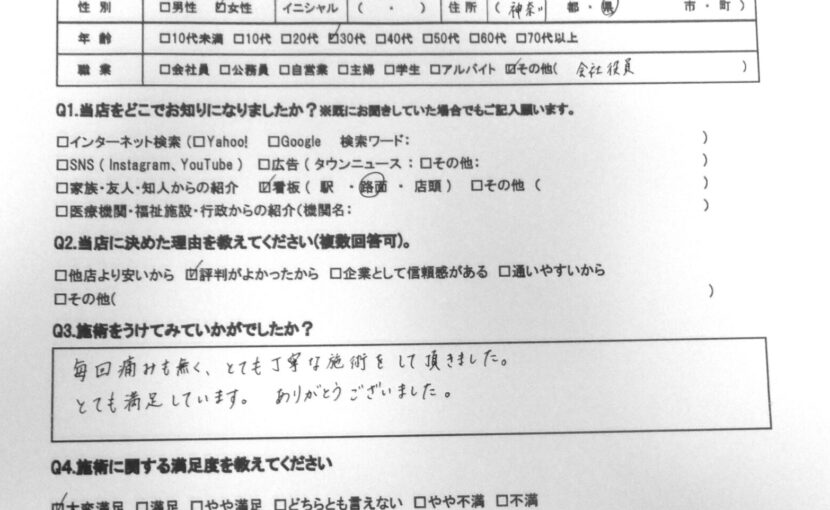 性別 □男性 ☑女性 イニシャル ( ・ ) 住所 ( 神奈川 都・県 市・町 )
年齢 □10代未満 □10代 □20代 ☑30代 □40代 □50代 □60代 □70代以上
職業 □会社員 □公務員 □自営業 □主婦 □学生 □アルバイト ☑その他( 会社役員 )
Q1.当店をどこでお知りになりましたか？※既にお聞きしていた場合でもご記入願います。
□インターネット検索 (□Yahoo! □Google 検索ワード: )
□SNS ( Instagram、YouTube ) □広告 ( タウンニュース : □その他: )
□家族・友人・知人からの紹介 ☑看板 ( 駅 ・ 路面 ・ 店頭 ) □その他 ( )
□医療機関・福祉施設・行政からの紹介(機関名: )
Q2.当店に決めた理由を教えてください(複数回答可)。
□他店より安いから ☑評判がよかったから □企業として信頼感がある □通いやすいから
□その他( )
Q3.施術をうけてみていかがでしたか？
毎回痛みも無く、とても丁寧な施術をして頂きました。
とても満足しています。 ありがとうございました。
Q4.施術に関する満足度を教えてください
☑大変満足 □満足 □やや満足 □どちらとも言えない □やや不満 □不満